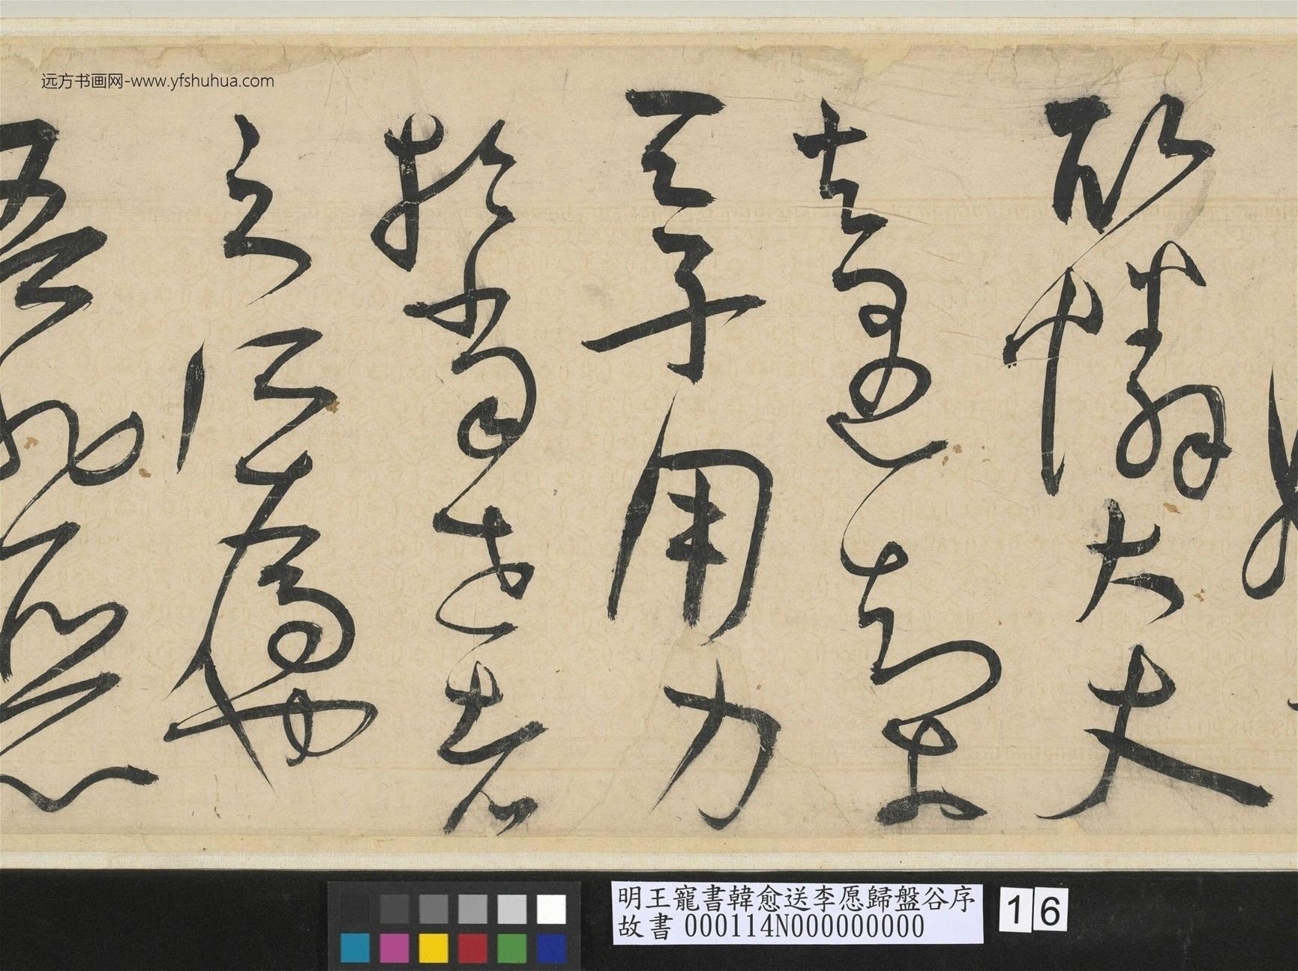 取憐大丈
夫之遇知於
天子用力
於當世者
之所為也
吾非惡
远方书画网-www.yfshuhua.com
明王寵書韓愈送李愿歸盤谷序
故書 000114N000000000
16